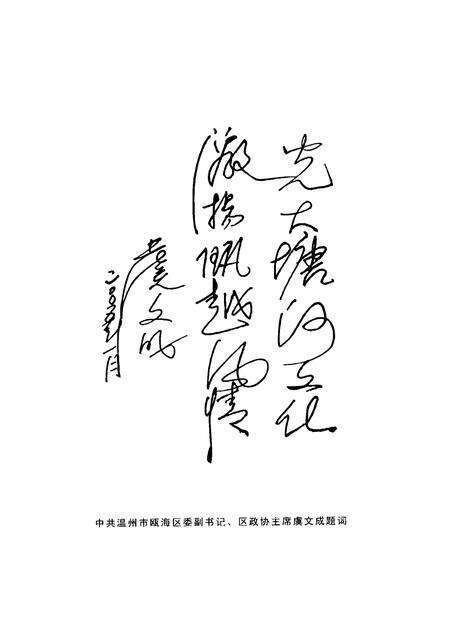 光大塘河文化
激扬瓯越情
虞文成
二〇〇五年一月
中共温州市瓯海区委副书记、区政协主席虞文成题词